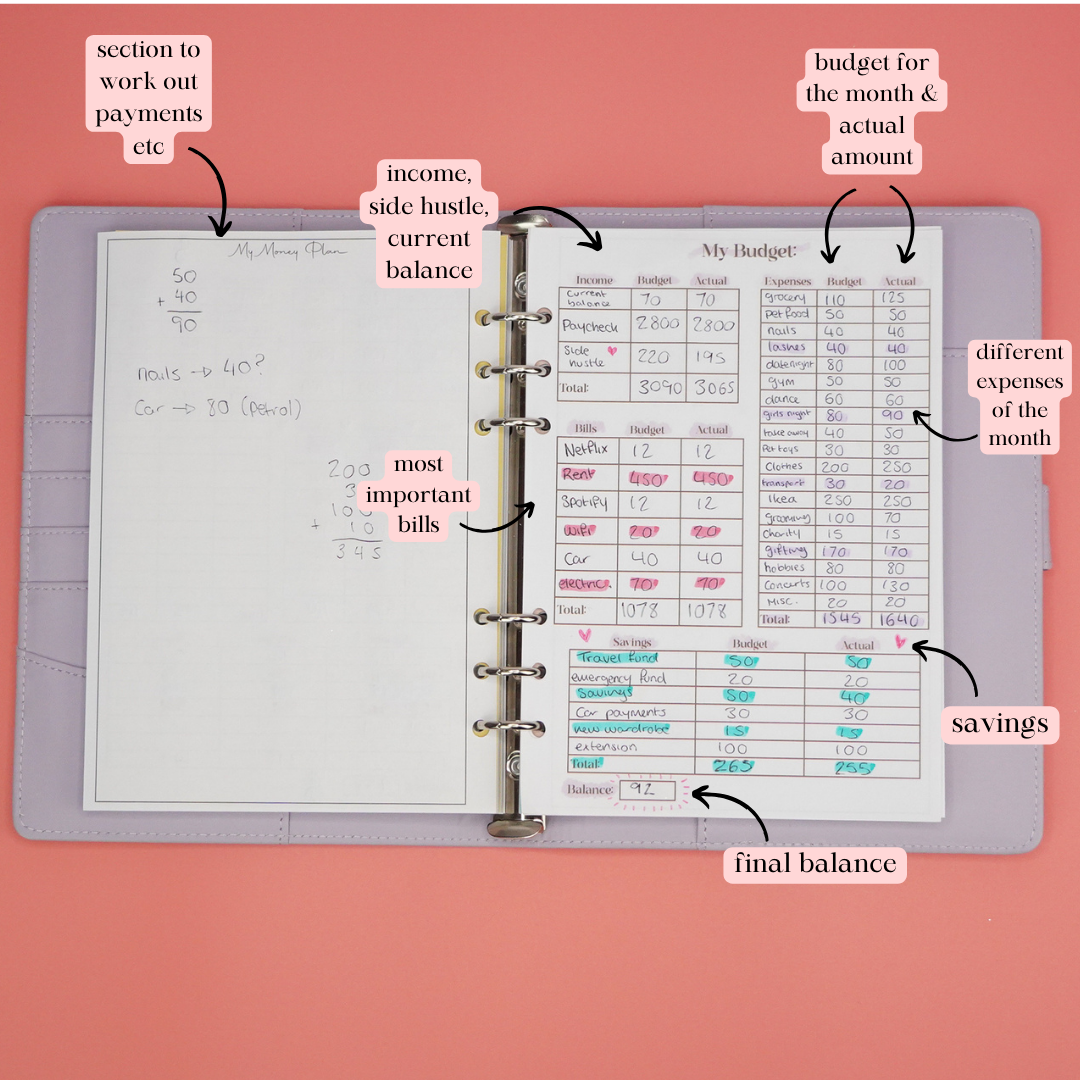 section to
work out
payments
etc
budget for
the month &
actual
amount
income,
side hustle,
current
balance
different
expenses
of the
month
most
important
bills
savings
final balance
My Money Plan
50
+ 40
90
nails → 40?
Car → 80 (petrol)
200
3
100
+ 10
345
My Budget:
Income Budget Actual
Current balance 70 70
Paycheck 2800 2800
Side hustle 220 195
Total: 3090 3065
Bills Budget Actual
Netflix 12 12
Rent 450 450
Spotify 12 12
Wifi 20 20
Car 40 40
electric. 70 70
Total: 1078 1078
Expenses Budget Actual
grocery 110 125
pet food 50 50
nails 40 40
lashes 40 40
date night 80 100
gym 50 50
dance 60 60
girls night 80 90
take away 40 50
Pet toys 30 30
Clothes 200 250
transport 30 20
Ikea 250 250
grooming 100 70
Charity 15 15
gifting 170 170
hobbies 80 80
Concerts 100 130
MISC. 20 20
Total: 1545 1640
Savings Budget Actual
Travel fund 50 50
emergency fund 20 20
Savings 50 40
Car payments 30 30
new wardrobe 15 15
extension 100 100
Total: 265 255
Balance: 92